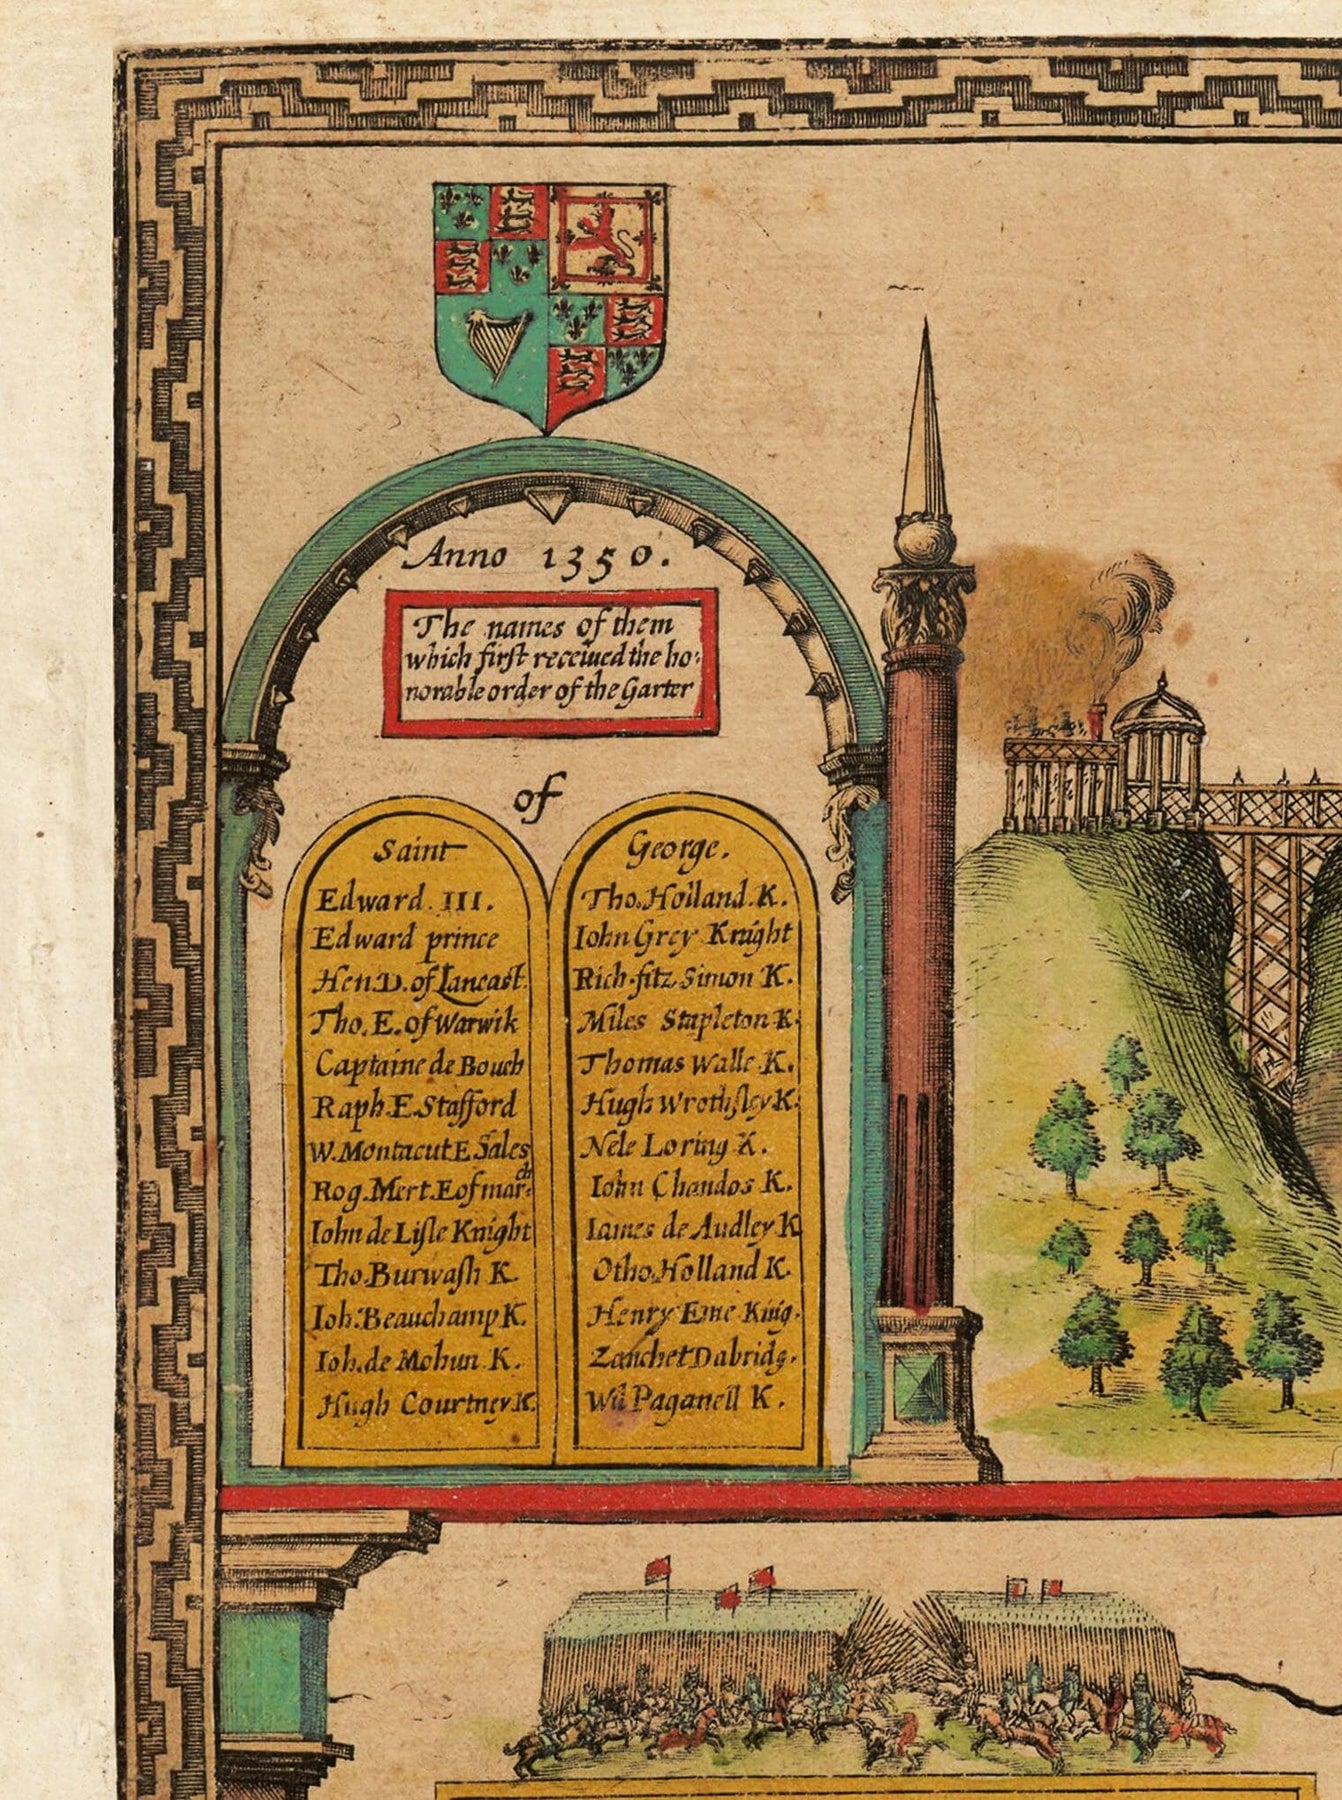 Anno 1350.
The names of them
which first receiued the ho:
norable order of the Garter
of
Saint
Edward III.
Edward prince
Hen D. of Lancast.
Tho. E. of Warwik
Captaine de Bouch
Raph E. Stafford
W. Montacut E Sales
Rog. Mert. E of mar:ch
Iohn de Lisle Knight
Tho. Burwash K.
Ioh. Beauchamp K.
Ioh. de Mohun K.
Hugh Courtney K.
George.
Tho. Holland K.
Iohn Grey Knight
Rich. fitz Simon K.
Miles Stapleton K.
Thomas Walle K.
Hugh Wrothsley K.
Nele Loring K.
Iohn Chandos K.
Iames de Audley K
Otho Holland K.
Henry Eme Knig.
Zanchet Dabridg.
Wil Paganell K.